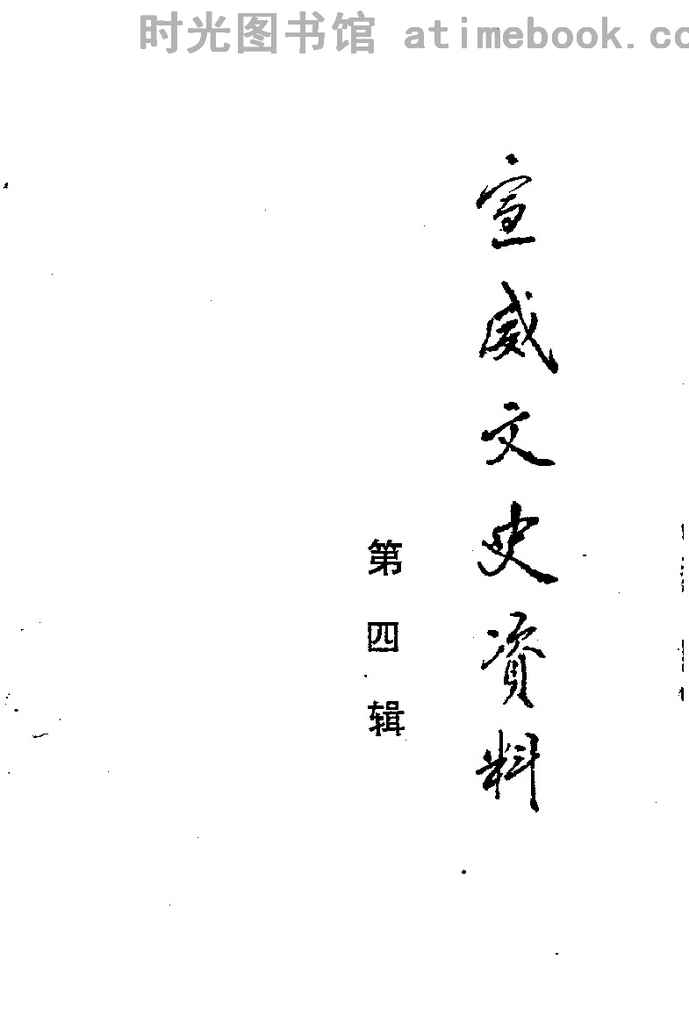 时光图书馆 atimebook.co
宣威文史資料
第四辑